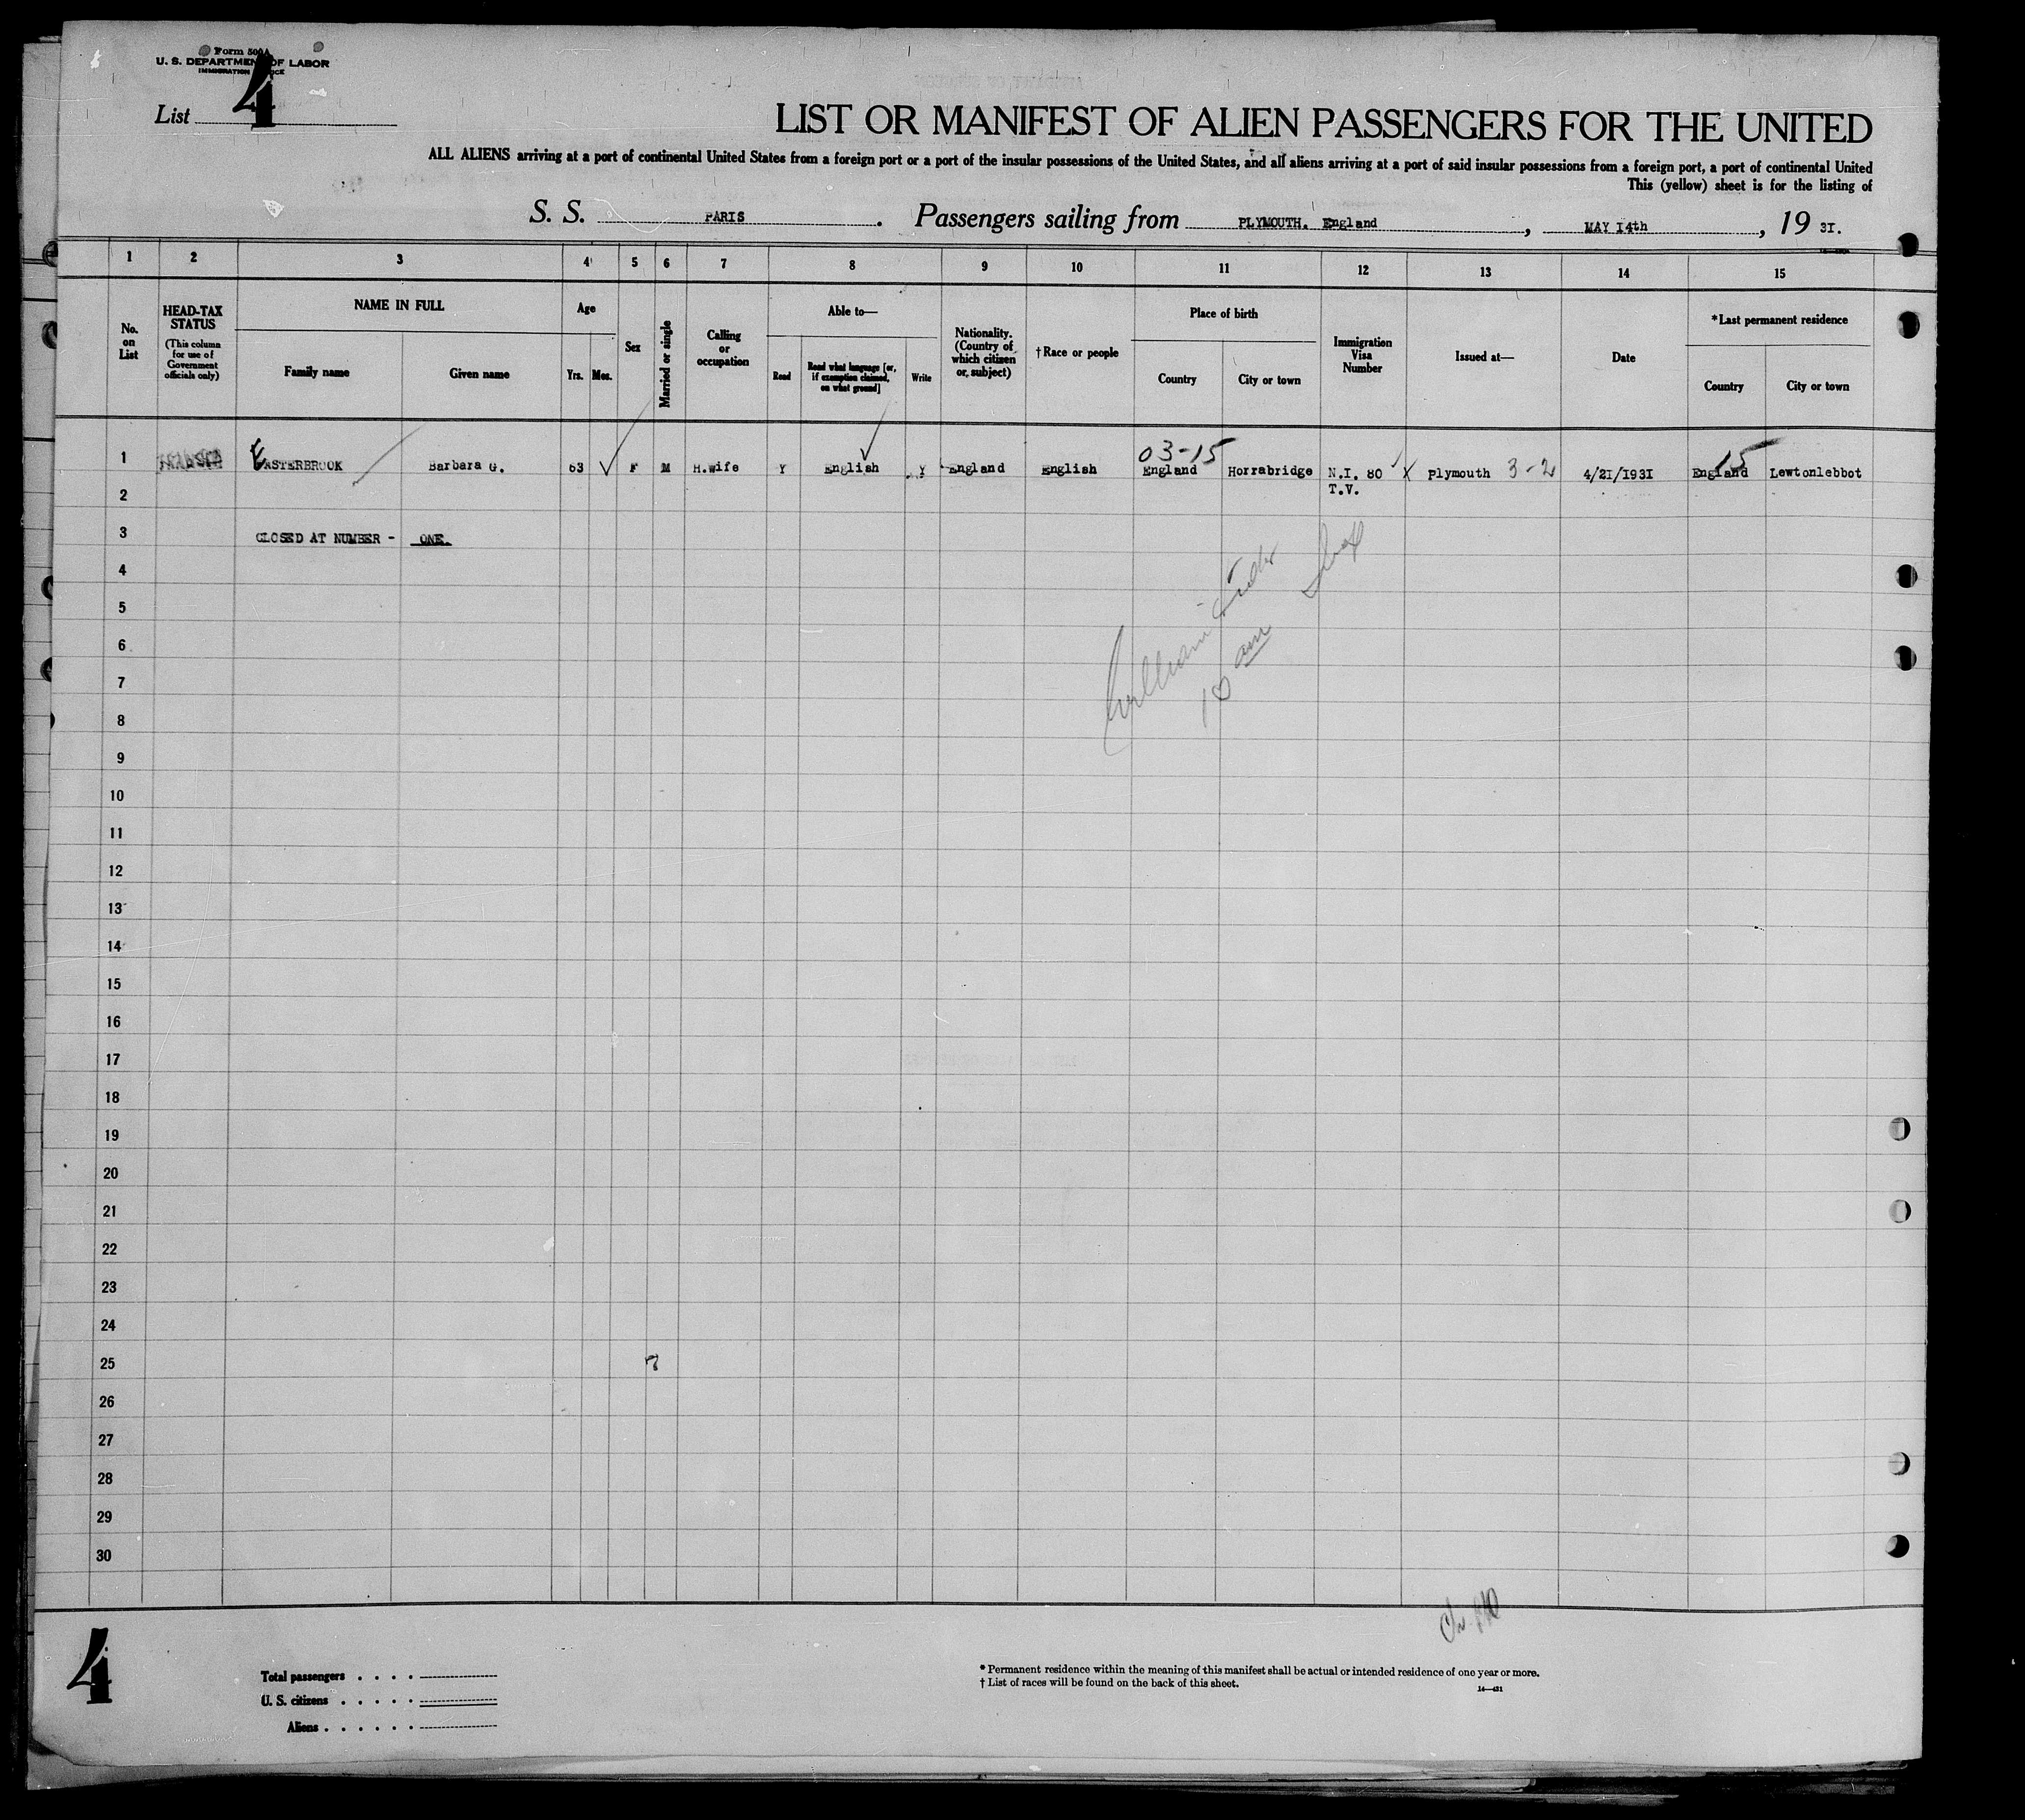 Form 500A
U. S. DEPARTMENT OF LABOR
IMMIGRATION SERVICE
List 4
LIST OR MANIFEST OF ALIEN PASSENGERS FOR THE UNITED
ALL ALIENS arriving at a port of continental United States from a foreign port or a port of the insular possessions of the United States, and all aliens arriving at a port of said insular possessions from a foreign port, a port of continental United
This (yellow) sheet is for the listing of
S. S. PARIS. Passengers sailing from PLYMOUTH. England, MAY I4th, 19 3I.
1 2 3 4 5 6 7 8 9 10 11 12 13 14 15
No. on List
HEAD-TAX STATUS (This column for use of Government officials only)
NAME IN FULL
Family name Given name
Age
Yrs. Mos.
Sex
Married or single
Calling or occupation
Able to—
Read Read what language [or, if exemption claimed, on what ground] Write
Nationality. (Country of which citizen or, subject)
†Race or people
Place of birth
Country City or town
Immigration Visa Number
Issued at—
Date
*Last permanent residence
Country City or town
03-15 15
1 EASTERBROOK Barbara G. 63 F M H.wife Y English Y England English England Horrabridge N.I. 80 Plymouth 3-2 4/2I/193I England Lewtonlebbot
T.V.
2
3 CLOSED AT NUMBER - ONE.
4
5
6
7
8
9
10
11
12
13
14
15
16
17
18
19
20
21
22
23
24
25
26
27
28
29
30
4
Total passengers
U. S. citizens
Aliens
* Permanent residence within the meaning of this manifest shall be actual or intended residence of one year or more.
† List of races will be found on the back of this sheet.
14—431